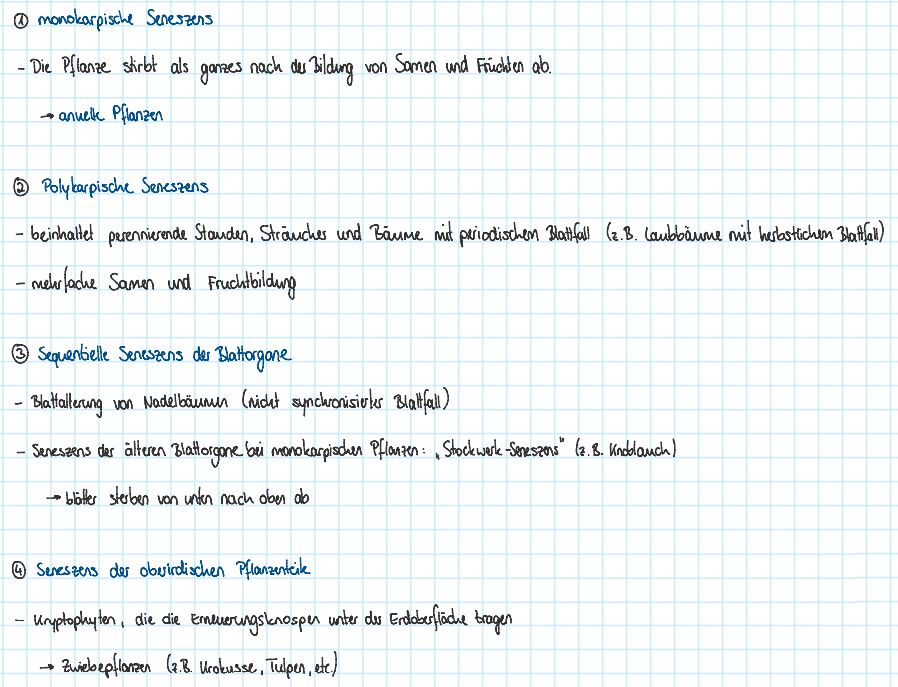 ① monokarpische Seneszens
- Die Pflanze stirbt als ganzes nach der Bildung von Samen und Früchten ab.
→ anuelle Pflanzen
② Polykarpische Seneszens
- beinhaltet perennierende Stauden, Sträucher und Bäume mit periodischen Blattfall (z.B. Laubbäume mit herbstlichem Blattfall)
- mehrfache Samen und Fruchtbildung
③ Sequentielle Seneszens der Blattorgane
- Blattalterung von Nadelbäumen (nicht synchronisierter Blattfall)
- Seneszens der älteren Blattorgane bei monokarpischen Pflanzen: „Stockwerk-Seneszens" (z.B. Knoblauch)
→ blätter sterben von unten nach oben ab
④ Seneszens der oberirdischen Pflanzenteile
- Kryptophyten, die die Erneuerungsknospen unter der Erdoberfläche tragen
→ Zwiebepflanzen (z.B. Krokusse, Tulpen, etc.)